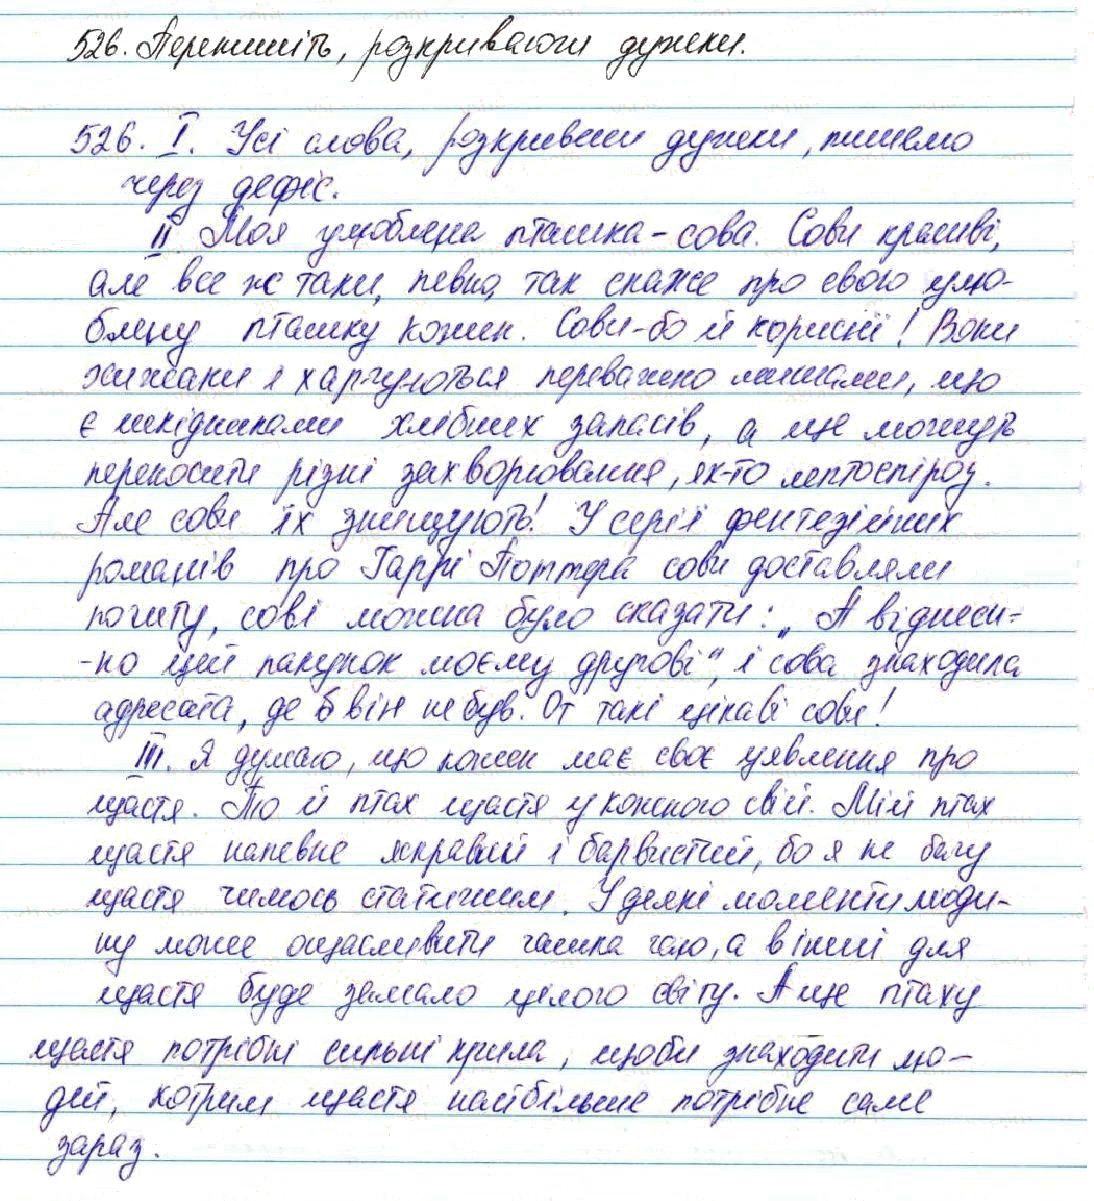 526. Перепишіть, розкриваючи дужки.
526. I. Усі слова, розкривши дужки, пишемо
через дефіс.
II Моя улюблена пташка - сова. Сови красиві,
але все ж таки, певно, так скаже про свого улю-
блену пташку кожен. Сови-бо й корисні! Вони
хижаки і харчуються переважно мишами, що
є шкідниками хлібних запасів, а ще можуть
переносити різні захворювання, як-то лептоспіроз.
Але сови їх знищують! У серії фентезійних
романів про Гаррі Поттера сови доставляли
пошту, сові можна було сказати: „А віднеси-
-но цей пакунок моєму другові", і сова знаходила
адресата, де б він не був. От такі цікаві сови!
III. Я думаю, що кожен має своє уявлення про
щастя. То й птах щастя у кожного свій. Мій птах
щастя напевне яскравий і барвистий, бо я не бачу
щастя чимось статичним. У деякі моменти люди-
ну може ощасливити чашка чаю, а в інші для
щастя буде замало цілого світу. А ще птаху
щастя потрібні сильні крила, щоби знаходити лю-
дей, котрим щастя найбільше потрібне саме
зараз.